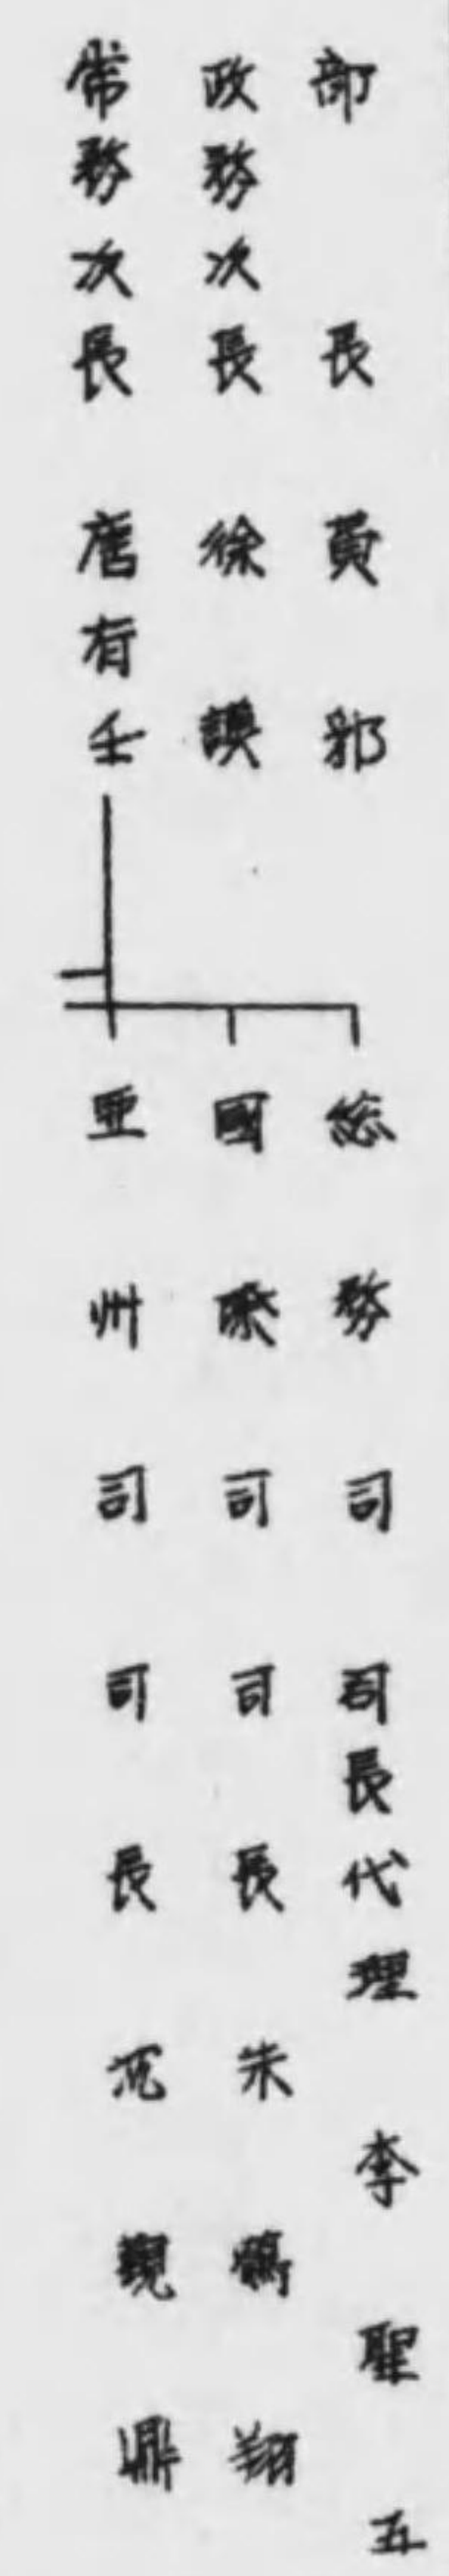 部長 黄郛
政務次長 徐謨
常務次長 唐有壬
総務司司長代理 李聖五
國際司司長 朱鶴翔
亜州司司長 沈覲鼎